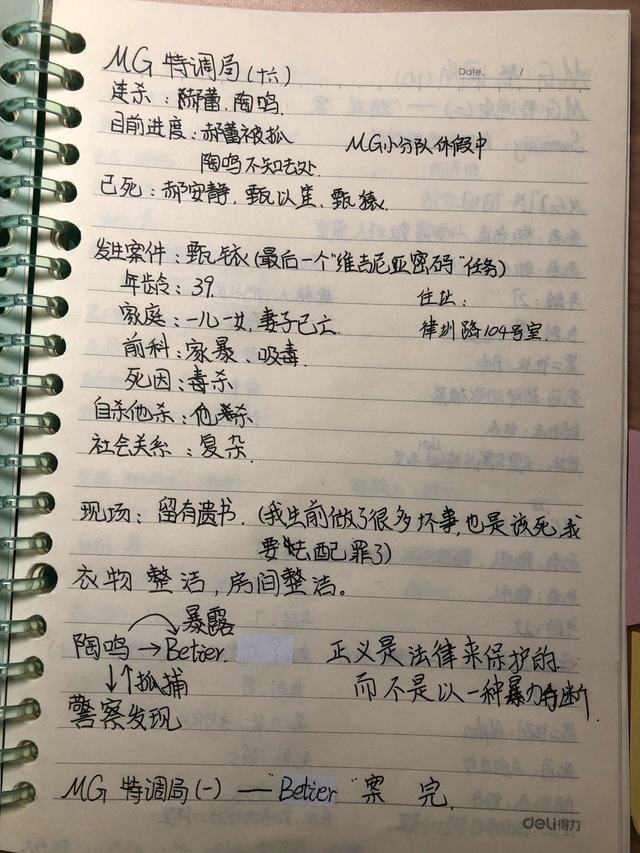 MG 特调局(十六)
Date. /
连杀:郝蕾.陶鸣.
目前进度:郝蕾被抓 MG小分队休假中
陶鸣不知去处
已死:郝安静,甄以笙,甄猿.
发生案件:甄(最后一个"维吉尼亚密码"任务)
年龄:39. 住址:
家庭:一儿一女,妻子已亡. 律圳路104号室.
前科:家暴、吸毒.
死因:毒杀
自杀他杀:他杀
社会关系:复杂.
现场:留有遗书.(我生前做了很多坏事,也是该死,我
要去配罪了)
衣物 整洁,房间整洁。
暴露
陶鸣→Betier. 正义是法律来保护的
↓↑抓捕 而不是以一种暴力
警察发现
MG 特调局(一) —"Betier"案 完.
deli得力